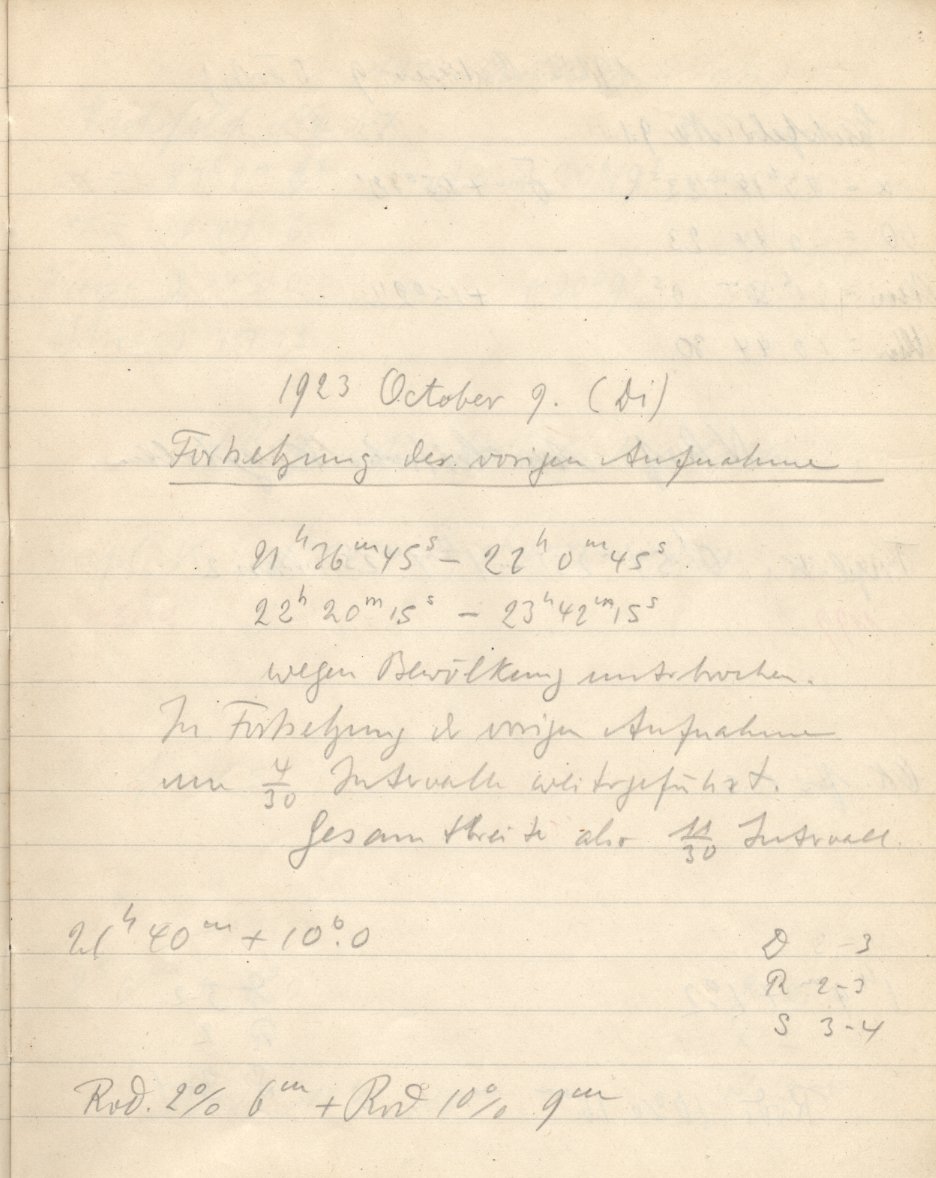 1923 October 9. (Di)
Fortsetzung der vorigen Aufnahme
21ʰ 36ᵐ 45ˢ – 22ʰ 0ᵐ 45ˢ
22ʰ 20ᵐ 15ˢ – 23ʰ 42ᵐ 15ˢ
wegen Bewölkung unterbrochen.
In Fortsetzung d vorigen Aufnahme
um 4/30 Intervall weitergeführt.
Gesamtbreite also 11/30 Intervall.
21ʰ 40ᵐ + 10°.0
D -3
R 2-3
S 3-4
Rod. 2% 6ᵐ + Rod 10% 9ᵐ